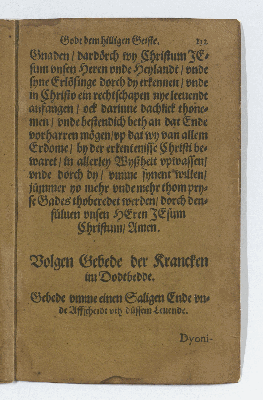 Gode dem hilligen Geiste. 112.
Gnaden / dardörch wy Christum JE-
sum vnsen Heren vnde Heylandt / vnde
syne Erlösinge dorch dy erkennen / vnde
in Christo ein rechtschapen nye leuende
anfangen / ock darinne dachlick thone-
men / vnde bestendich beth an dat Ende
vorharren mögen / vp dat wy van allem
Erdome / by der erkentenisse Christi be-
waret / in allerley Wysheit vpwassen /
vnde dorch dy / vmme synent willen /
jümmer yo mehr vnde mehr thom pry-
se Gades thoberedet werden / dorch den-
süluen vnsen HEren JEsum
Christum / Amen.
Volgen Gebede der Krancken
im Dodtbedde.
Gebede vmme einen Saligen Ende vn-
de Affscheidt vth düssem Leuende.
Dyoni-